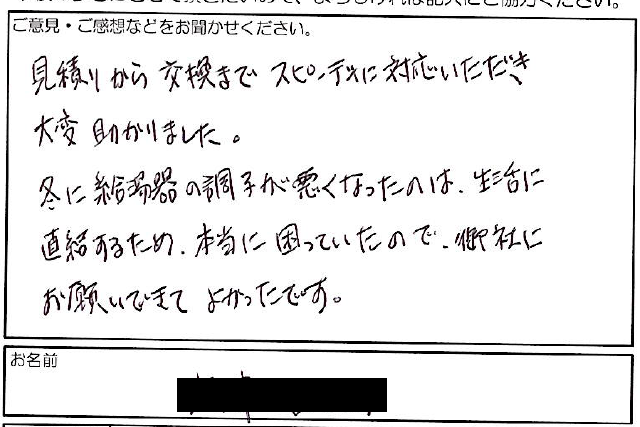 ご意見・ご感想などをお聞かせください。
見積りから交換まで スピーディに対応いただき、
大変助かりました。
冬に給湯器の調子が悪くなったのは、生活に
直結するため、本当に困っていたので、御社に
お願いできて よかったです。
お名前